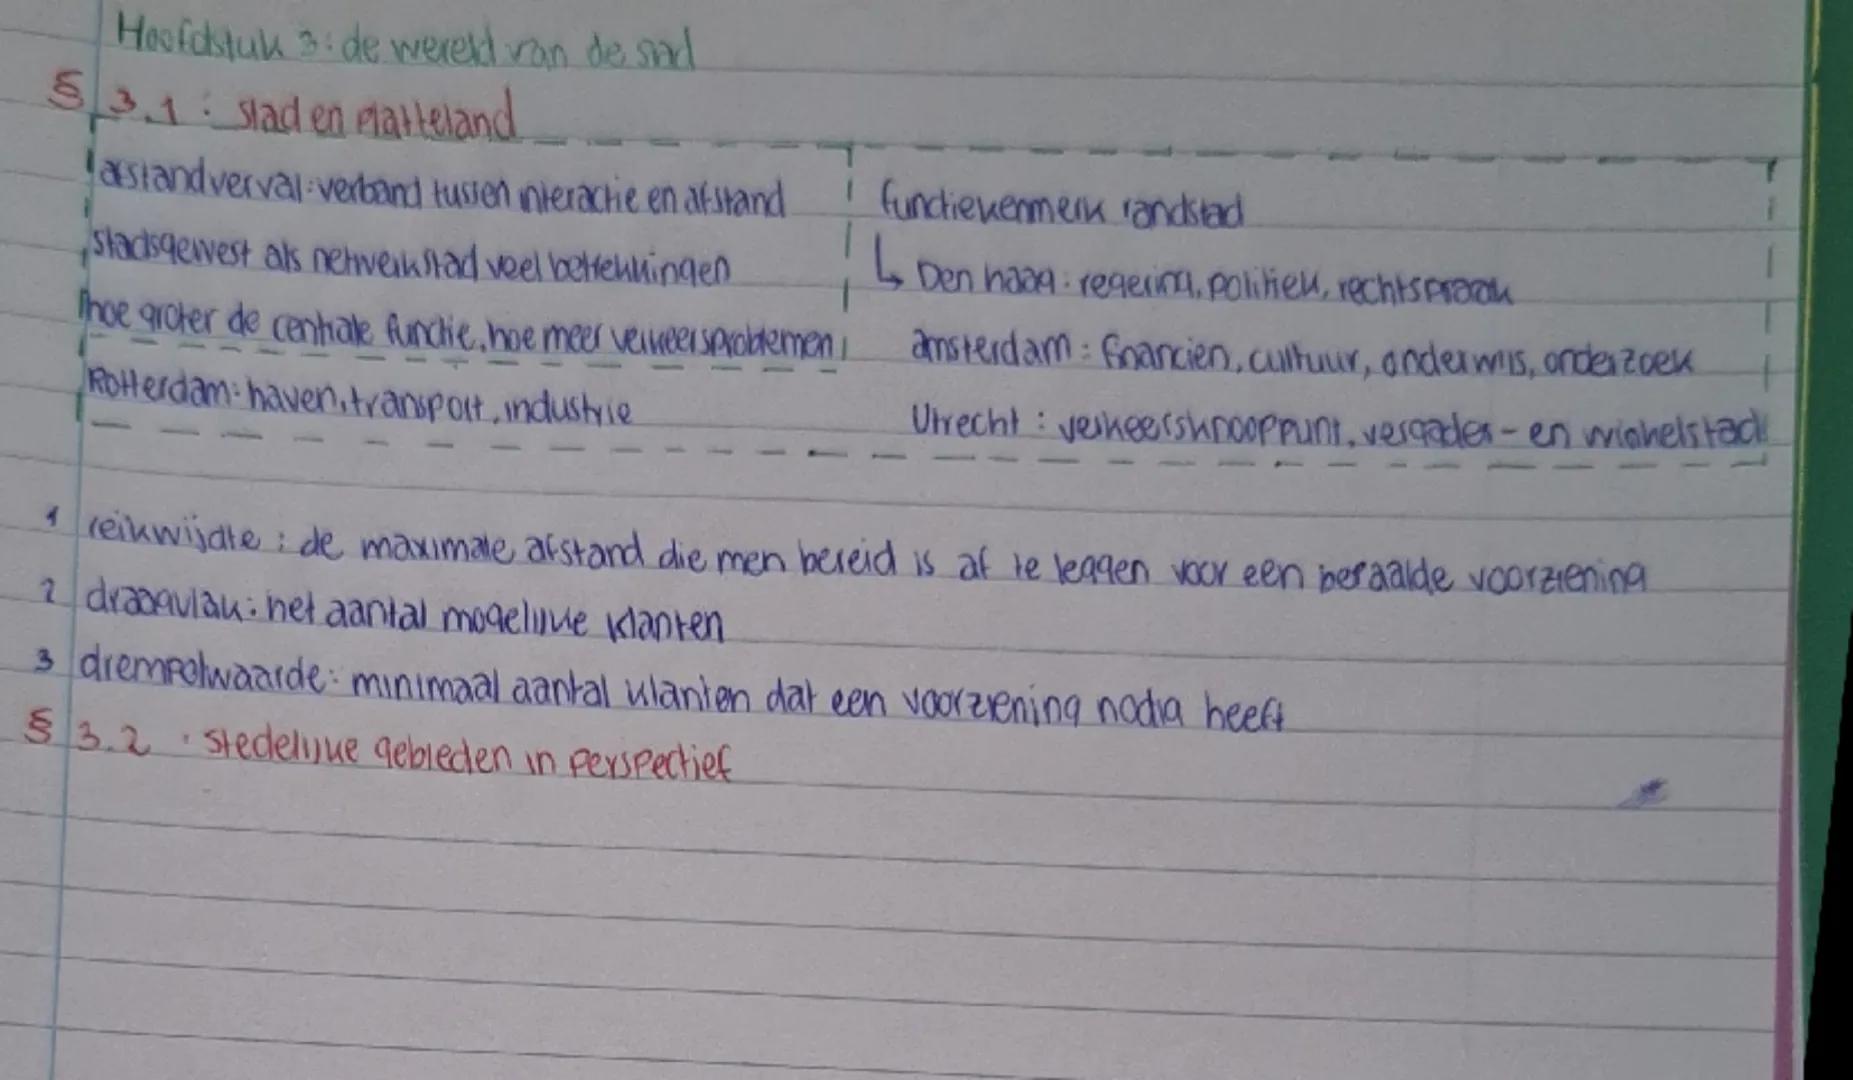 Hoofdstuk 3: de wereld van de stad
§ 3.1: stad en platteland
afstandverval: verband tussen interactie en afstand
stadsgewest als netwerkstad veel betrekkingen
hoe groter de centrale functie, hoe meer verkeersproblemen
Rotterdam: haven, transport, industrie
functiekenmerk randstad
↳ Den haag: regering, politiek, rechtspraak
amsterdam: financien, cultuur, onderwijs, onderzoek
Utrecht: verkeersknooppunt, vergader- en winkelstad
1 reikwijdte: de maximale afstand die men bereid is af te leggen voor een bepaalde voorziening
2 draagvlak: het aantal mogelijke klanten
3 drempelwaarde: minimaal aantal klanten dat een voorziening nodig heeft
§ 3.2: stedelijke gebieden in perspectief